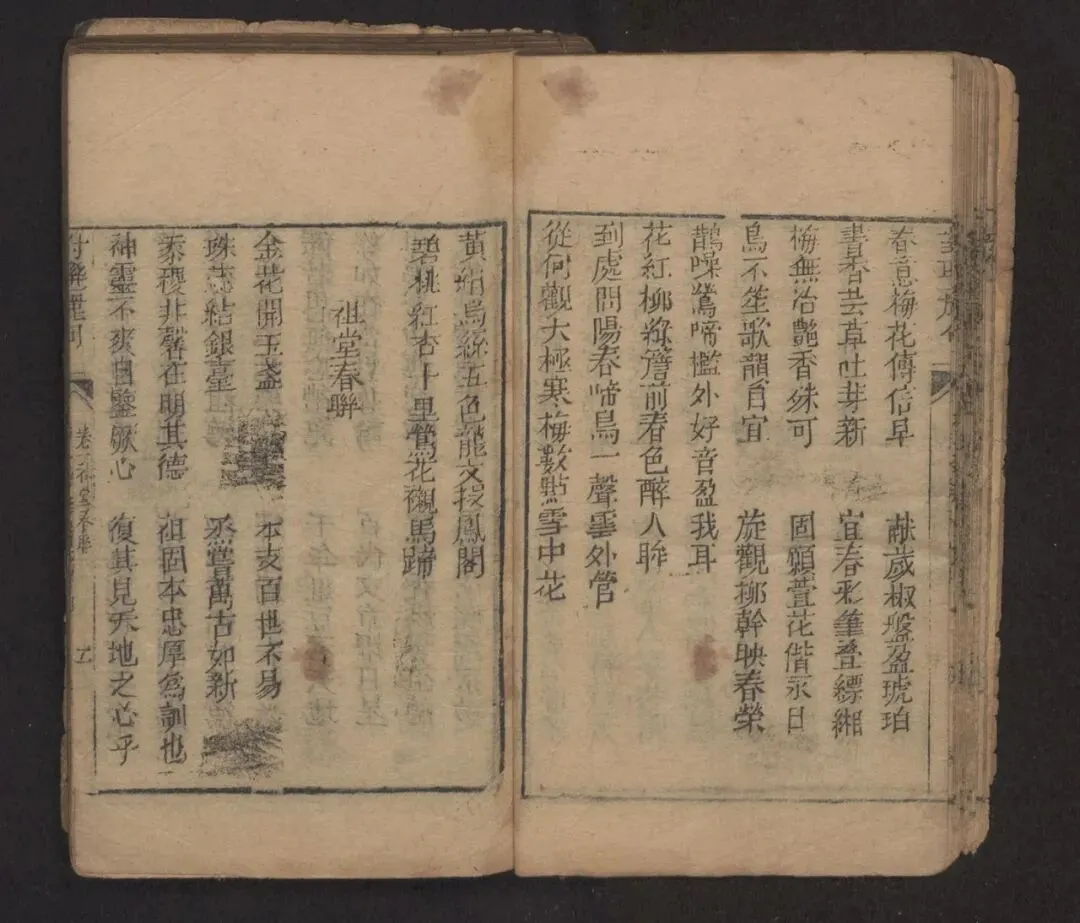 春意梅花傳信早 献歲椒盤盈琥珀
書春芸草吐芽新 宜春彩筆疊縹緗
梅無冶艶香殊可 固願萱花偕永日
鳥不笙歌韻自宜 旋觀椰幹映春榮
鵲噪鶯啼檻外好音盈我耳
花紅柳綠簷前春色醉人眸
到處問陽春啼鳥一聲雲外管
從何觀大極寒梅數點雪中花
黄絹烏絲五色龍文挍鳳閣
碧桃紅杏十里鶯花襯馬蹄
祖堂春聨
金花開玉盞 本支百世不易
珠蕊結銀臺 烝嘗萬古如新
黍稷非馨在明其德 祖固本忠厚為訓也
神靈不爽自鑒厥心 復其見天地之心乎
卷 祖堂春聨